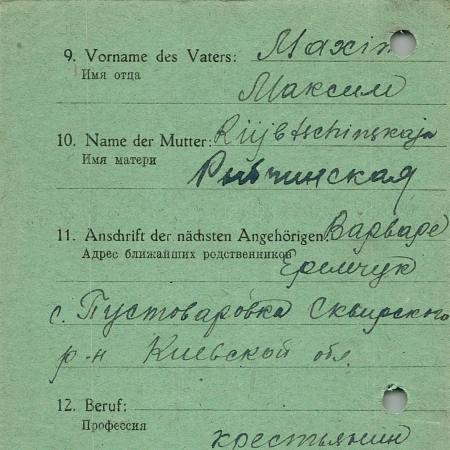 9. Vorname des Vaters: Maxim
Имя отца
Максим
10. Name der Mutter: Rüjbtschinskaja
Имя матери
Рыбчинская
11. Anschrift der nächsten Angehörigen: Варваре
Адрес ближайших родственников
Еремчук
с. Пустоваровка Сквирского
р-н Киевской обл.
12. Beruf:
Профессия
крестьянин